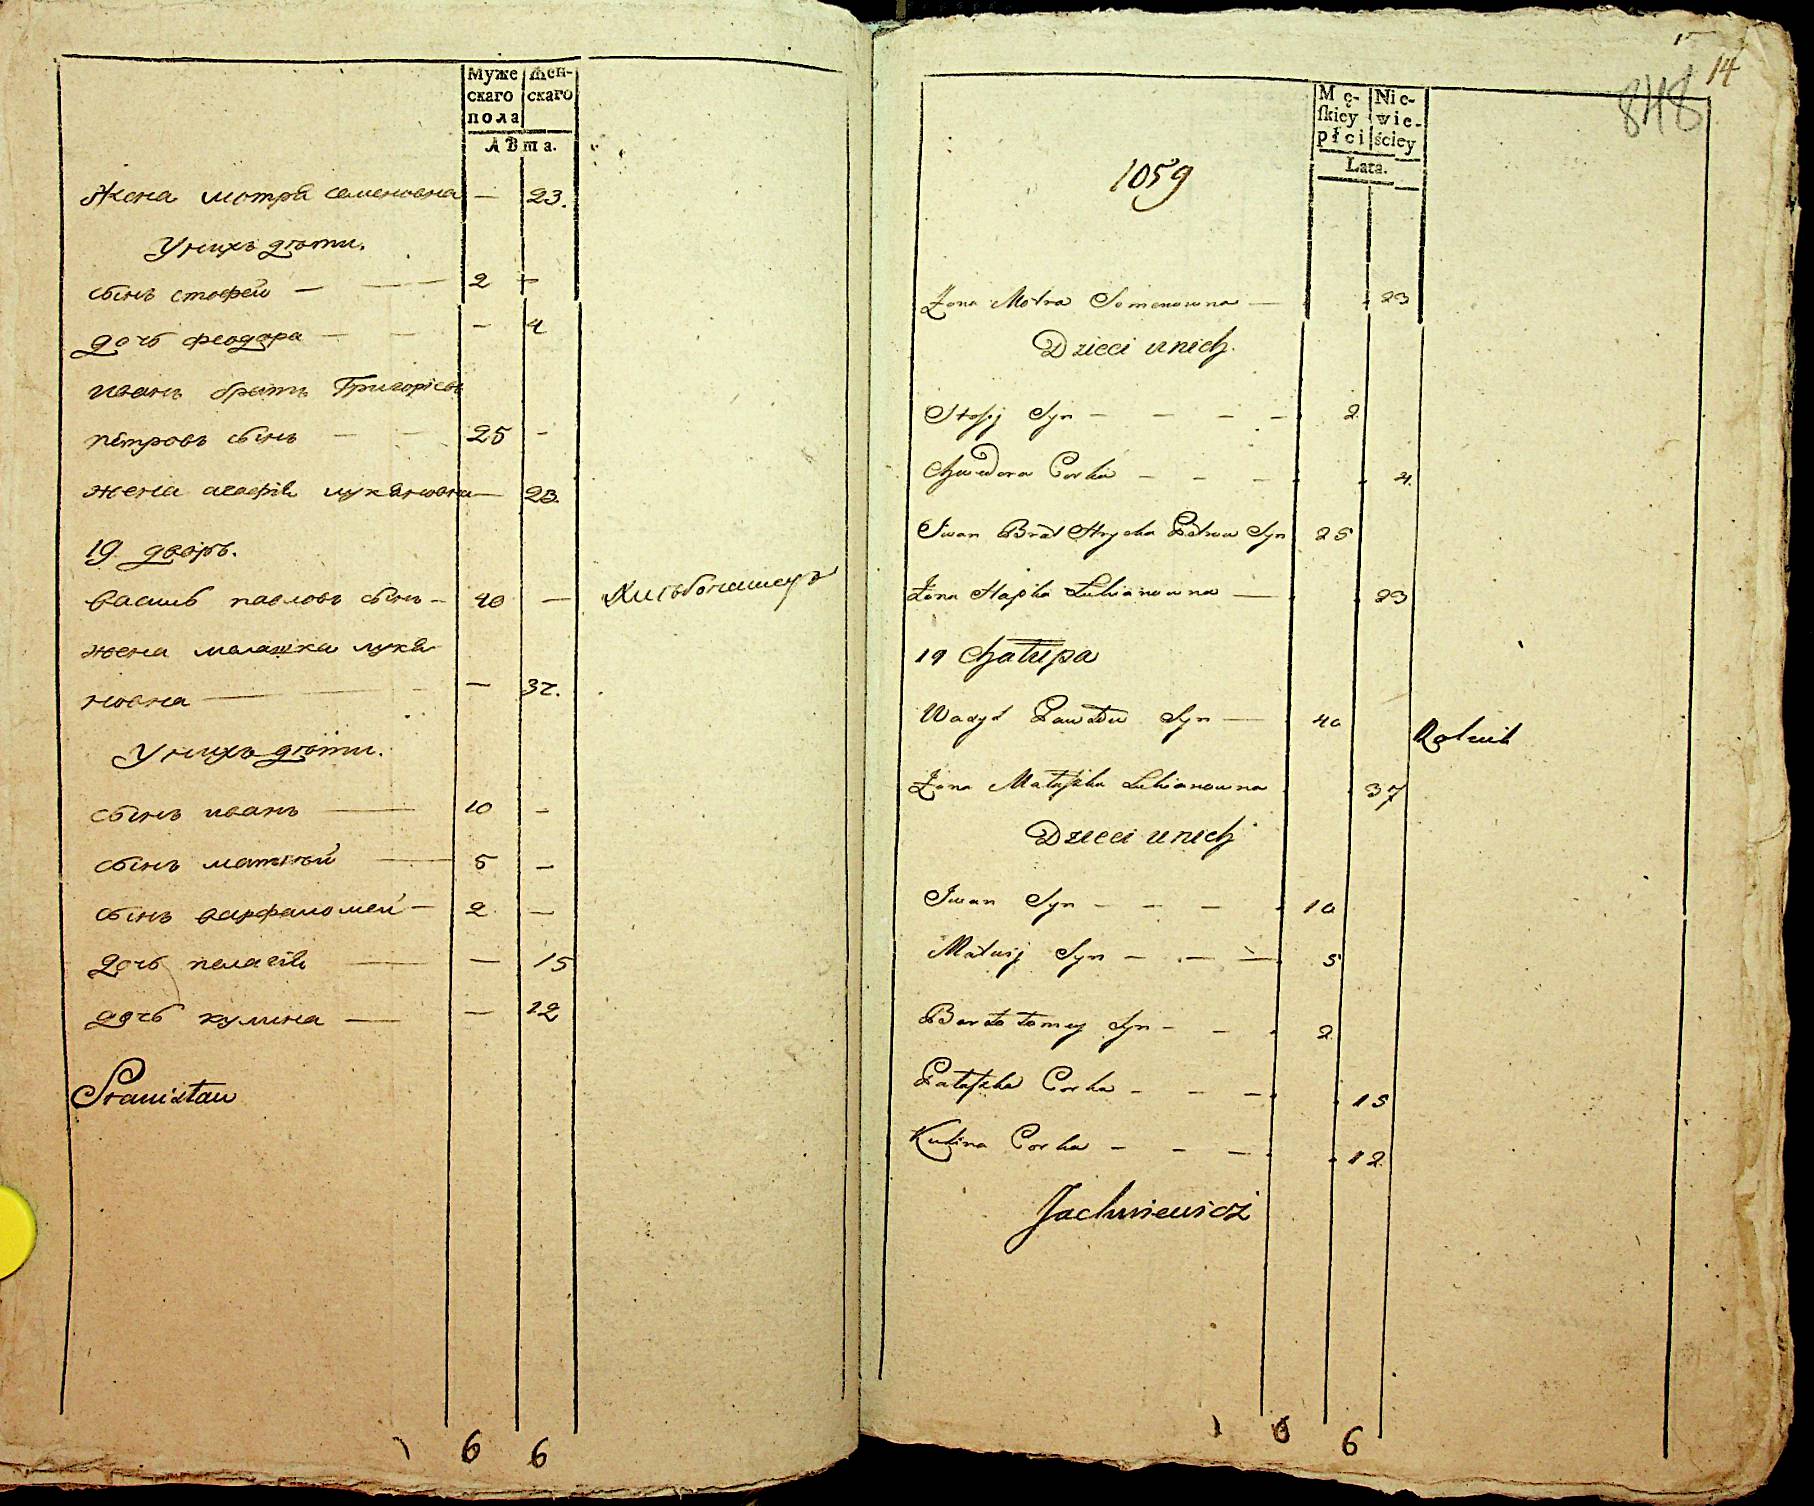 Муже Жен-
скаго скаго
пола
лѣта.
Жена мотря семеновна — 23.
У нихъ дѣти.
сынъ стефей — — 2 —
дочь феодора — — — 4
иванъ братъ Григорiевъ
петровъ сынъ — — 25 —
жена агафiя лукяновна — 23.
19 дворъ.
василь павловъ сынъ — 40 — Хлѣбопашецъ
жена малашка лукя
новна — — 37.
У нихъ дѣти.
сынъ иванъ — 10 —
сынъ матвѣй — 5 —
сынъ варфаломей — 2 —
дочь пелагiя — — 15
дочь кулина — — 12
Stanisław
6 6
14
848
Mę- Nie-
ſkiey wie-
płci ściey
Lata.
1059
Żona Motra Semenowna — 23
Dzieci u nich.
Syn — — — — 2
Chwedora Corka — — — 4.
Iwan Brat Hrycka Petrow Syn 25
Żona Hapka Lukianowna — 23
19 Chałupa
Wasyl Pawłow Syn — 40 Rolnik
Żona Małaſzka Lukianowna 37
Dzieci u nich
Iwan Syn — — — 10
Matwij Syn — — — 5
Bartłomey Syn — — 2
Pałaſzka Corka — — — 15
Kulina Corka — — — 12
Jachniewicz
6 6